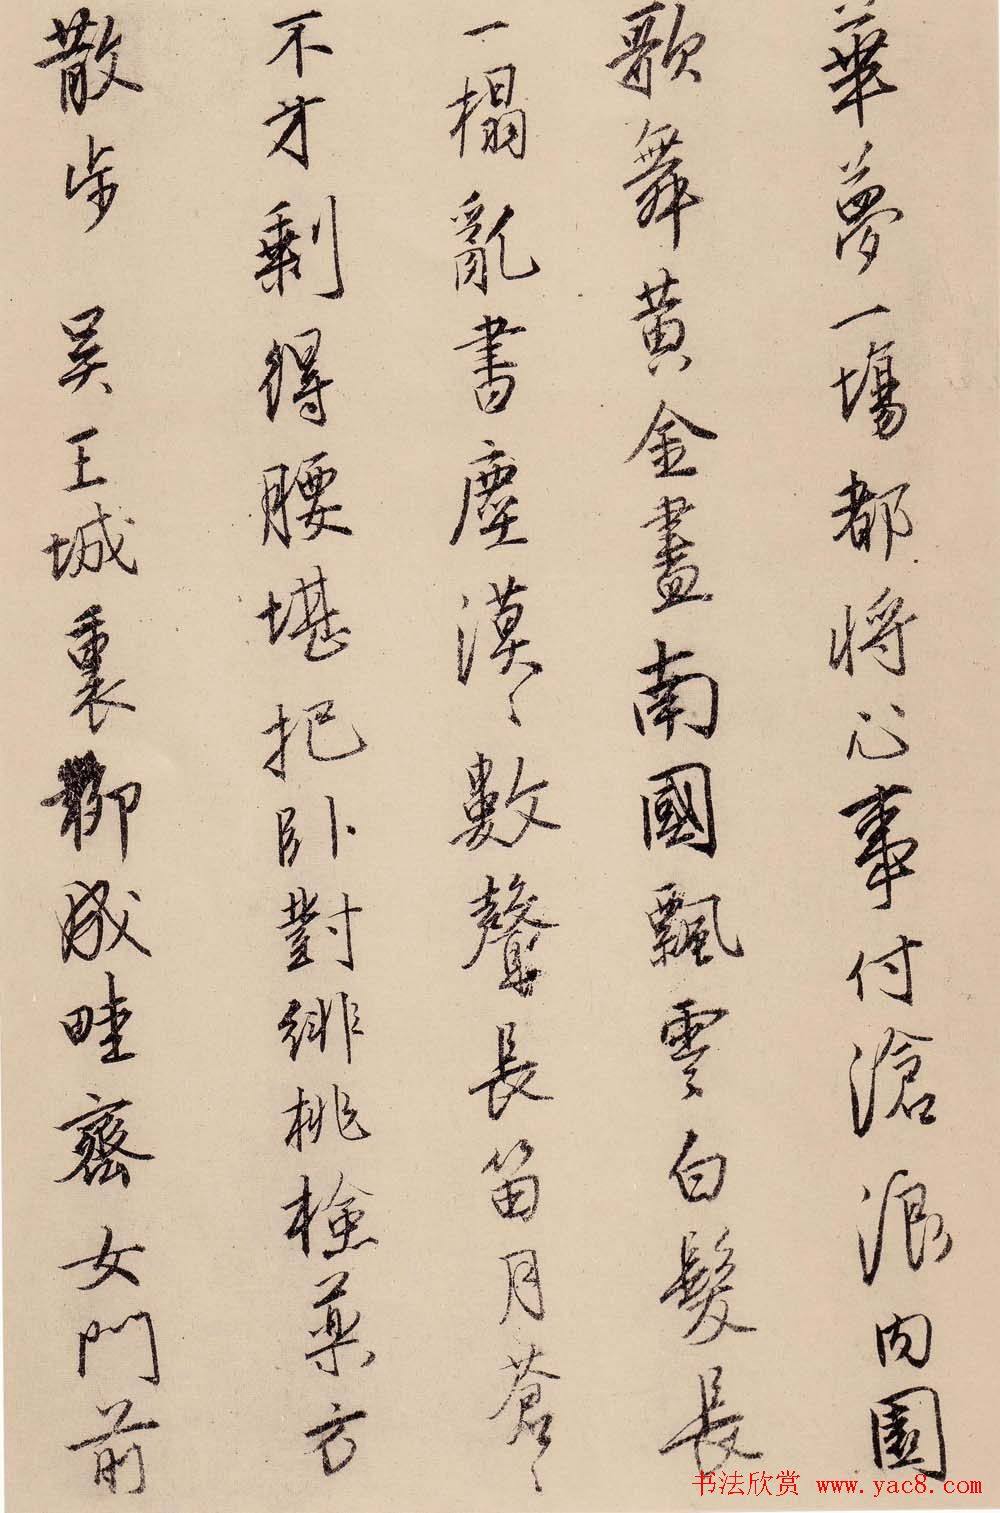 華夢一場都將心事付滄浪內園
歌舞黃金盡南國飄零白髮長
一榻亂書塵漠々數聲長笛月蒼々
不才剩得腰堪把臥對緋桃檢藥方
散步 吳王城裏柳成畦齊女門前
书法欣赏 www.yac8.com